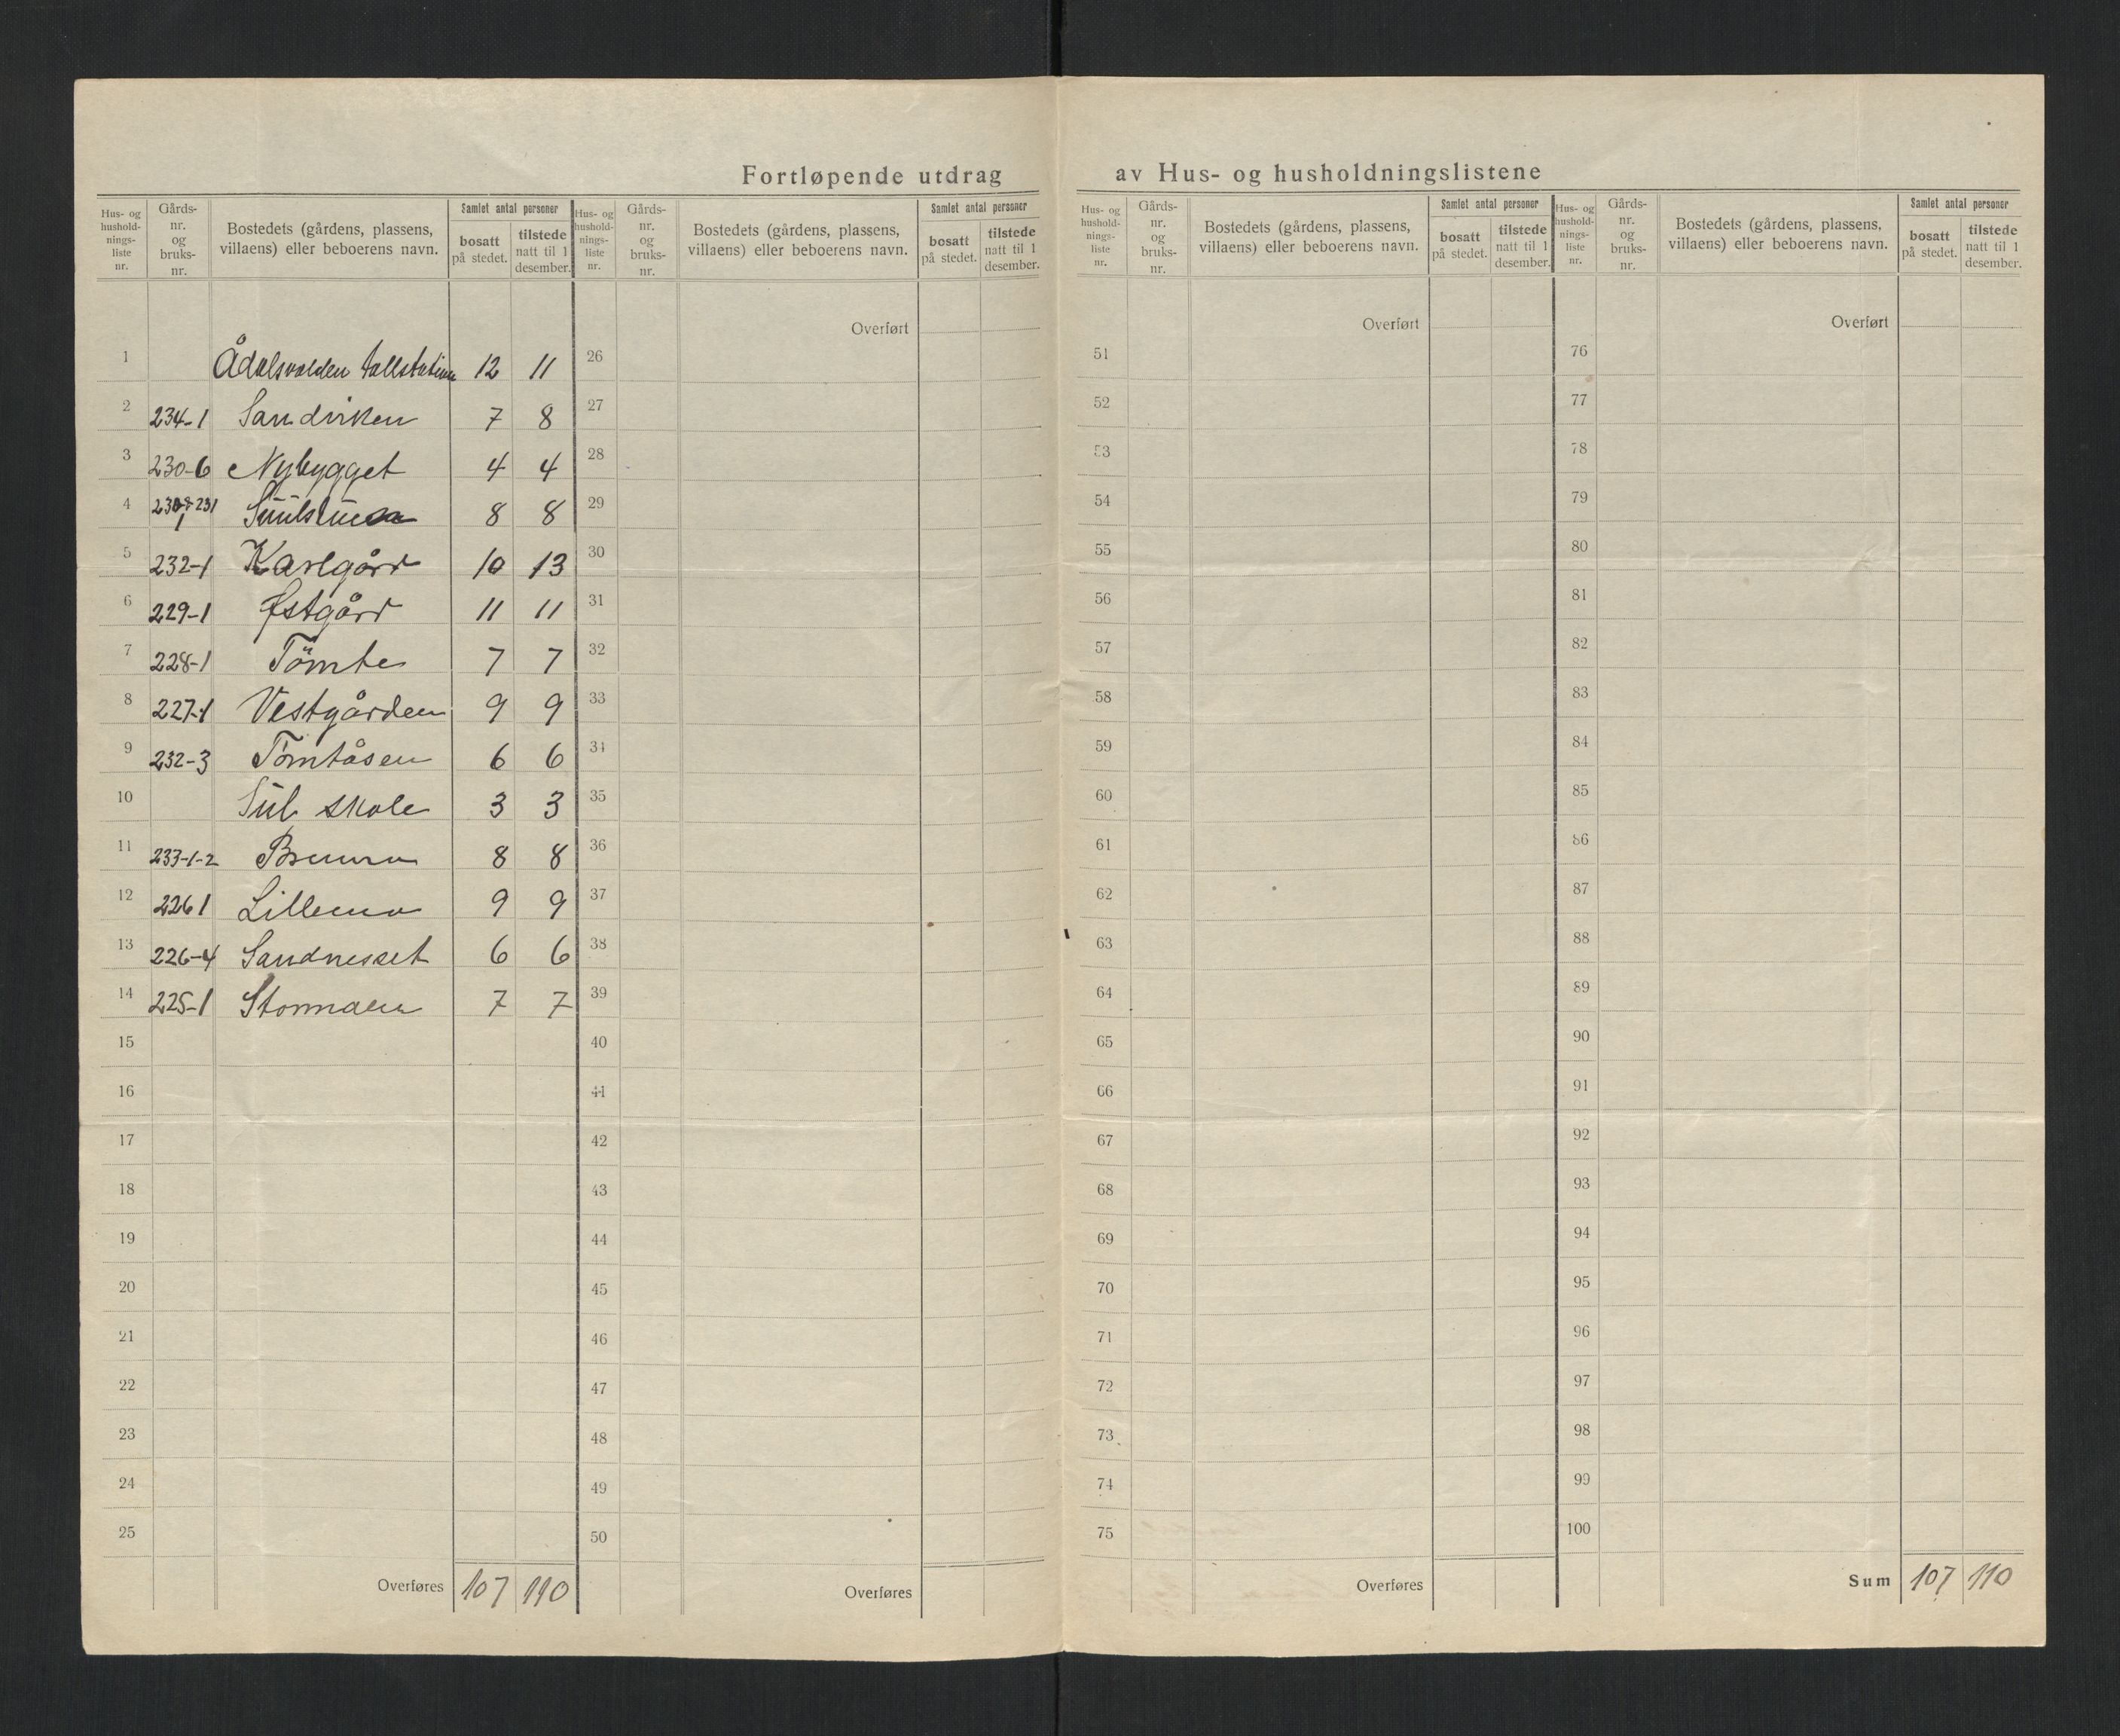 Fortløpende utdrag av Hus- og husholdningslistene
Hus- og hushold-nings-liste nr. Gårds-nr. og bruks-nr. Bostedets (gårdens, plassens, villaens) eller beboerens navn. Samlet antal personer bosatt på stedet. tilstede natt til 1 desember.
Hus- og hushold-nings-liste nr. Gårds-nr. og bruks-nr. Bostedets (gårdens, plassens, villaens) eller beboerens navn. Samlet antal personer bosatt på stedet. tilstede natt til 1 desember.
Hus- og hushold-nings-liste nr. Gårds-nr. og bruks-nr. Bostedets (gårdens, plassens, villaens) eller beboerens navn. Samlet antal personer bosatt på stedet. tilstede natt til 1 desember.
Hus- og hushold-nings-liste nr. Gårds-nr. og bruks-nr. Bostedets (gårdens, plassens, villaens) eller beboerens navn. Samlet antal personer bosatt på stedet. tilstede natt til 1 desember.
Overført Overført Overført
1 Ådalsvolden tollstation 12 11 26 51 76
2 234-1 Sandviken 7 8 27 52 77
3 230-6 Nybygget 4 4 28 53 78
4 8 8 29 54 79
5 232-1 Karlgård 10 13 30 55 80
6 229-1 Østgård 11 11 31 56 81
7 228-1 Tömte 7 7 32 57 82
8 227-1 Vestgården 9 9 33 58 83
9 232-3 Tömtåsen 6 6 34 59 84
10 Sul skole 3 3 35 60 85
11 233-1-2 8 8 36 61 86
12 226 1 Lillemo 9 9 37 62 87
13 226-4 Sandnesset 6 6 38 63 88
14 225-1 7 7 39 64 89
15 40 65 90
16 41 66 91
17 42 67 92
18 43 68 93
19 44 69 94
20 45 70 95
21 46 71 96
22 47 72 97
23 48 73 98
24 49 74 99
25 50 75 100
Overføres 107 110 Overføres Overføres Sum 107 110